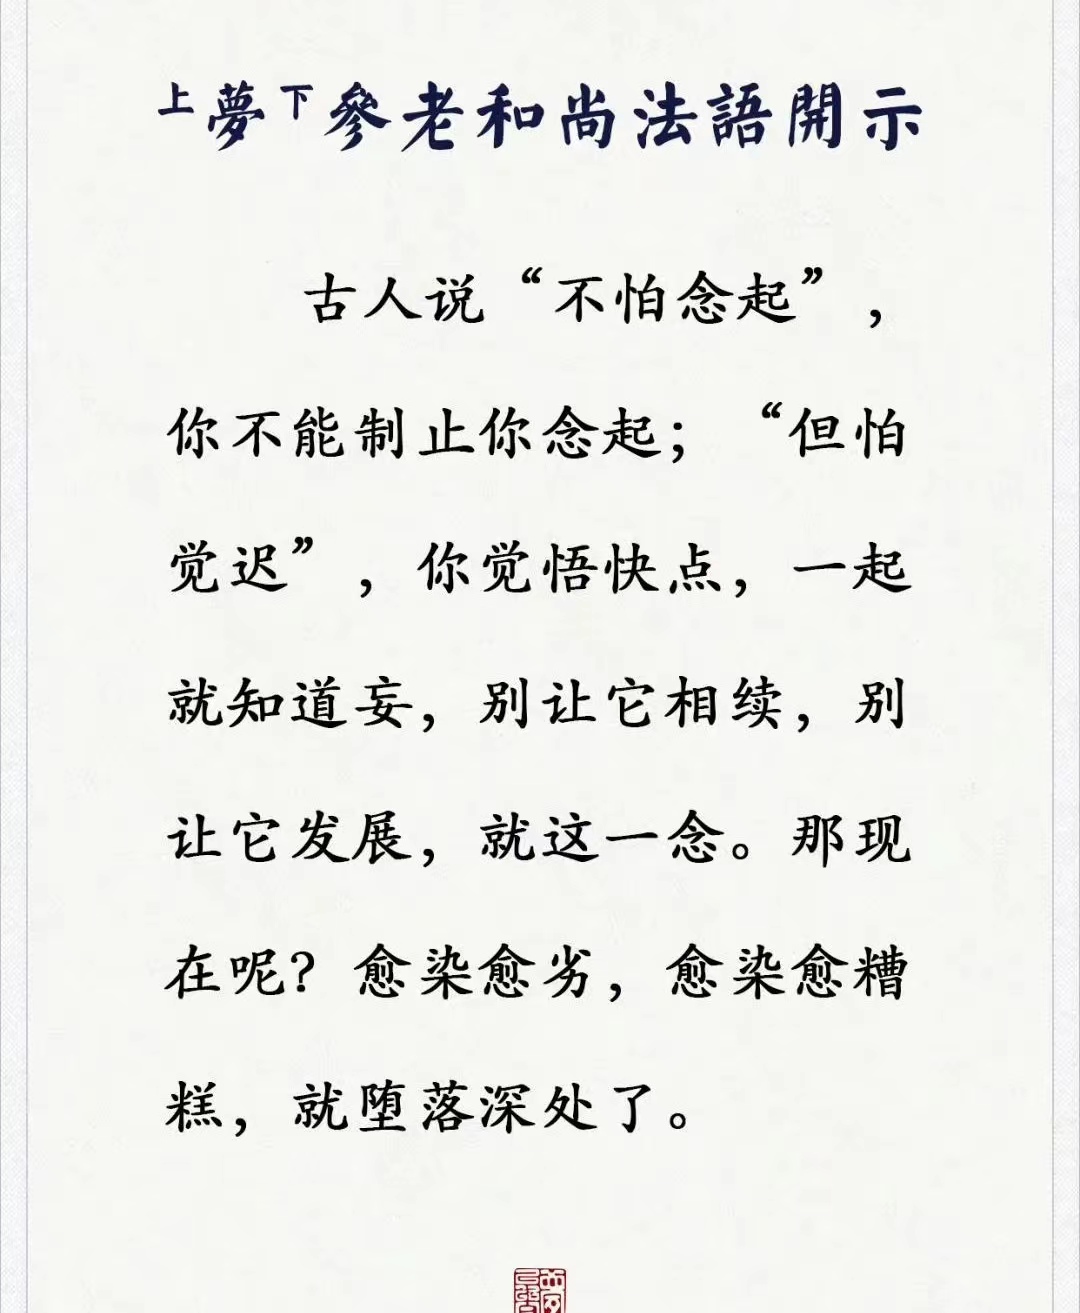 上夢下參老和尚法語開示
古人说“不怕念起”，
你不能制止你念起；“但怕
觉迟”，你觉悟快点，一起
就知道妄，别让它相续，别
让它发展，就这一念。那现
在呢？愈染愈劣，愈染愈糟
糕，就堕落深处了。